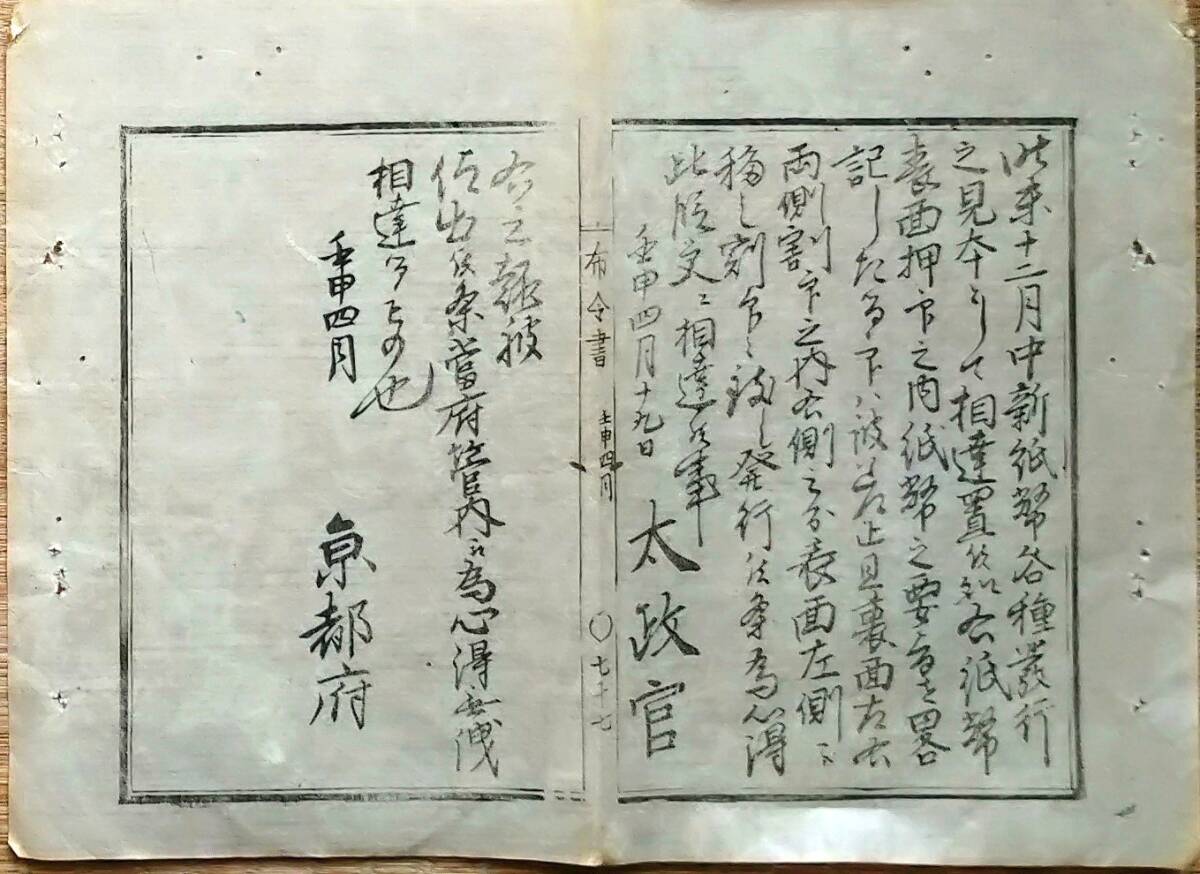 昨未十二月中新紙幣各種發行
之見本ヲ以て相達置候処右紙幣
表面押印之内紙幣之要旨を畧
記したる印ハ被差止且裏面左右
両側割印之内右側之分表面左側ニ
移し割印ニ致し発行候条為心得
此段更ニ相達候事
壬申四月十九日
太政官
布令書
壬申四月
〇七十七
右之趣被
仰出候条當府管内江為心得無洩
相達するもの也
壬申四月
京都府